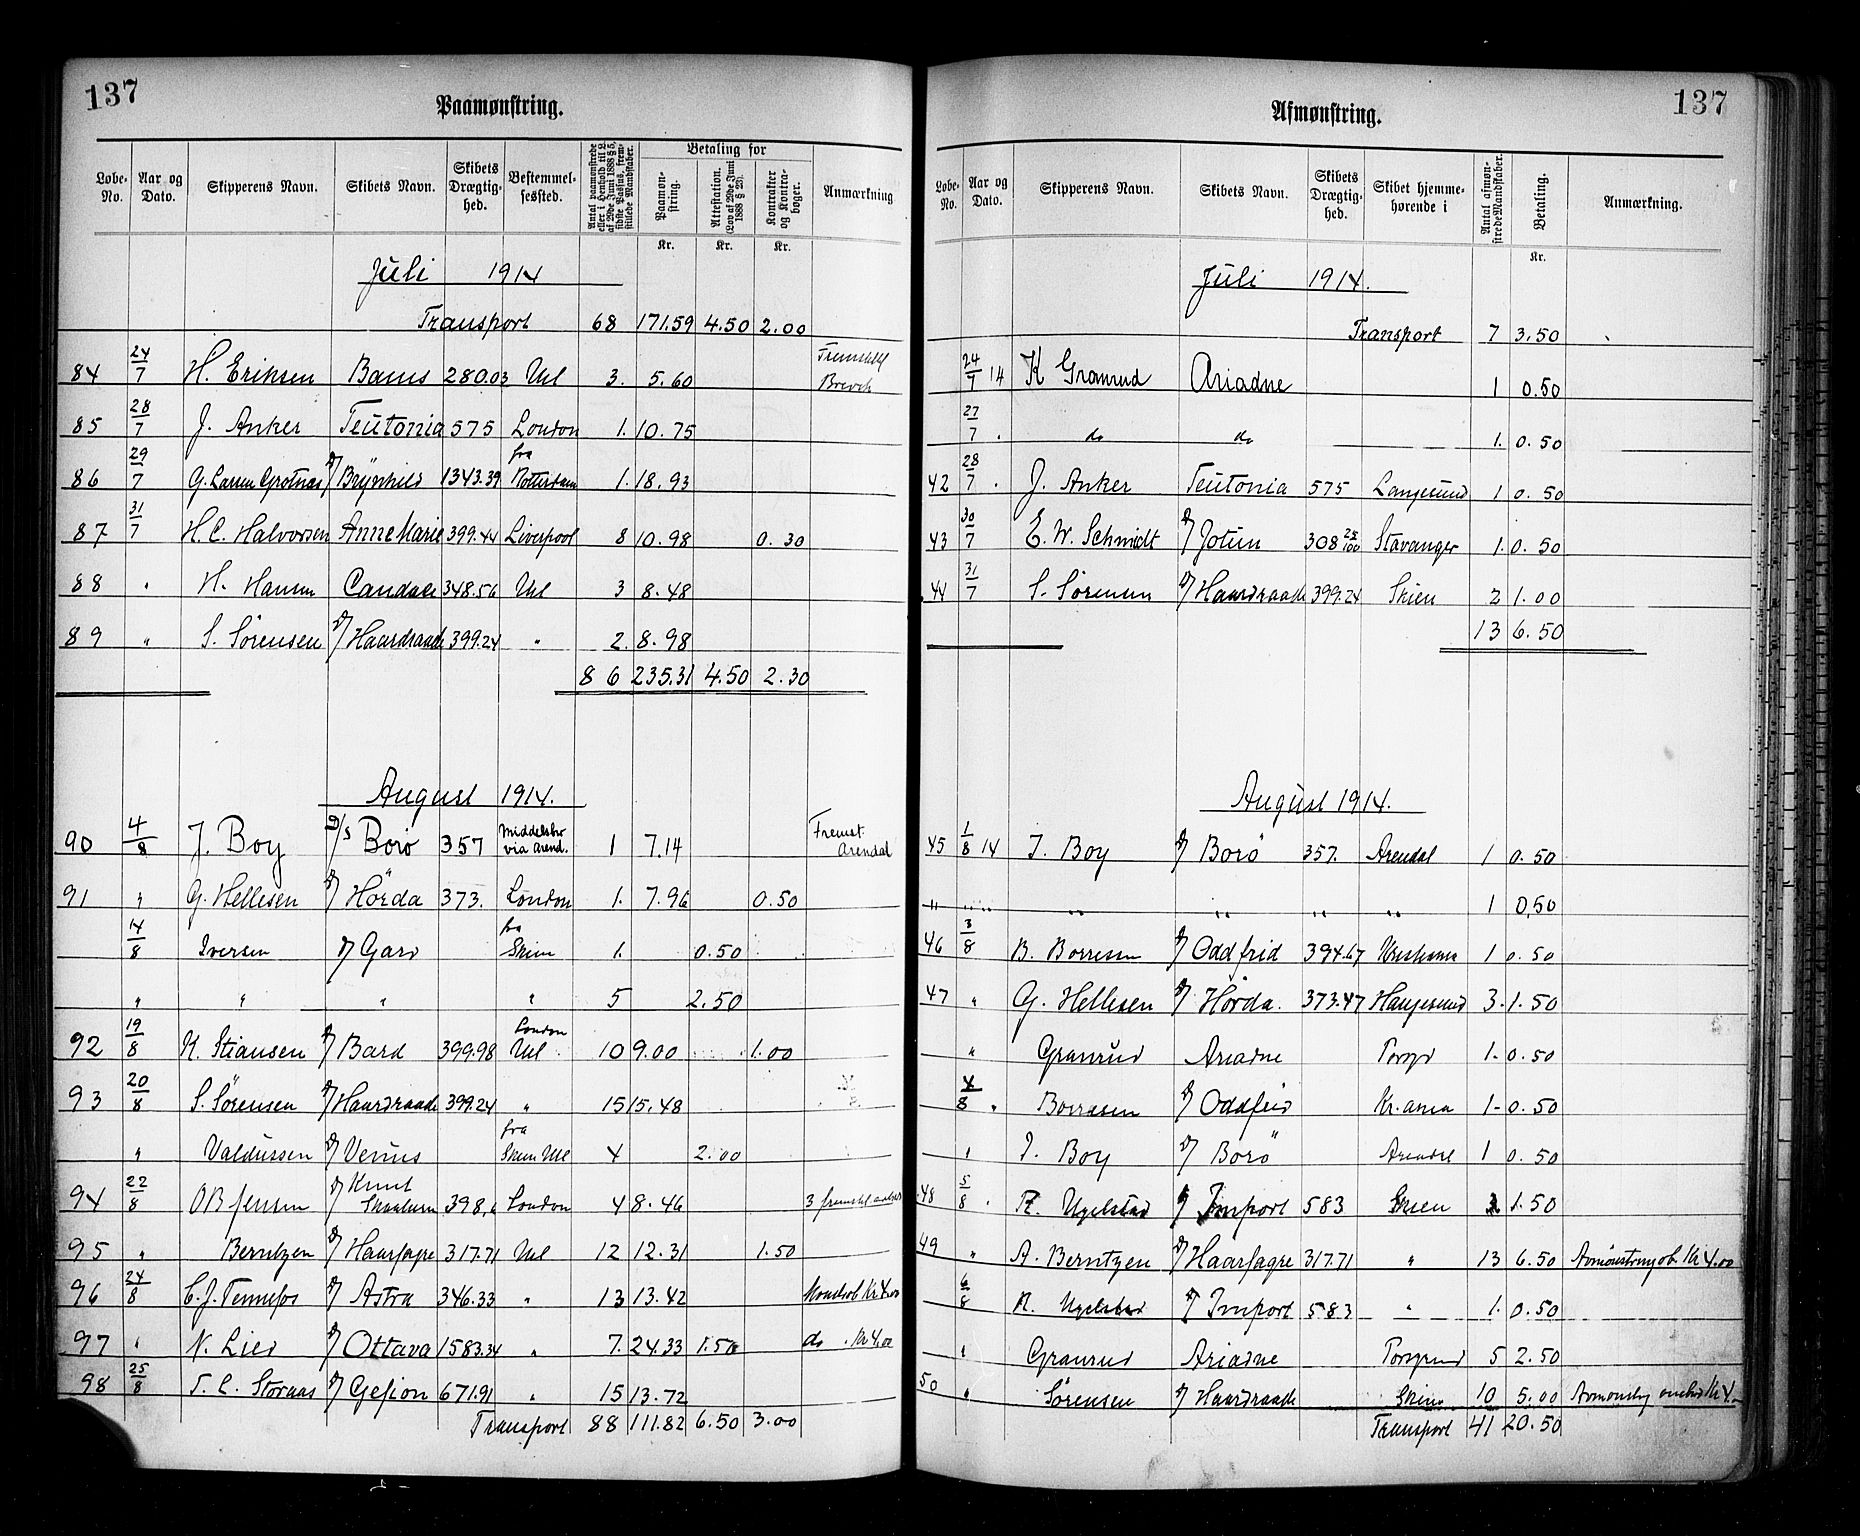 137
Paamønstring.
Løbe-No. Aar og Dato. Skipperens Navn. Skibets Navn. Skibets Drægtig-hed. Bestemmel-sessted. Antal paamønstrede eller i Henhold til L. af 29de Juni 1888 § 5, sidste Passus, frem-stillede Mandskaber. Betaling for Paamøn-string. Attestation. (Lov af 29de Juni 1888 § 23). Kontrakter og Kontra-bøger. Anmærkning
Kr. Kr. Kr.
Juli 1914
Transport 68 171.59 4.50 2.00
84 24/7 H. Eriksen Bams 280.03 Udl 3. 5.60 Brevik
85 28/7 J. Anker Teutonia 575 London 1. 10.75
86 29/7 G. Larsen Grotnæs D/ Brynhild 1343.39 fra Rotterdam 1. 18.93
87 31/7 H. C. Halvorsen Anne Marie 399.44 Liverpool 8 10.98 0.30
88 " H. Hansen Candace 348.56 Udl 3 8.48
89 " S. Sørensen D/ Haardraade 399.24 " 2. 8.98
86 235.31 4.50 2.30
August 1914.
90 4/8 J. Boy D/S Borø 357 Middelsbro via Arend. 1 7.14 Fremst. Arendal
91 " G. Hellesen D/ Hörda 373. London 1. 7.96 0.50
14/8 Iversen D/ Gard fra Skien 1. 0.50
" " " " 5 2.50
92 19/8 K. Stiansen D/ Bard 399.98 London Udl. 10 9.00 1.00
93 20/8 S. Sørensen D/ Haardraade 399.24 " 15 15.48
" Valdussen D/ Venus fra Skien Udl 4 2.00
94 22/8 O B Jensen D/ Knut Skaaluren 398,6 London 4 8.46 3 fremstil.
95 " Berntzen D/ Haarfagre 317.71 Udl 12 12.31 1.50
96 24/8 C. J. D/ Astra 346.33 " 13 13.42 Kr 4.00
97 " N. Lied D/ Ottava 1583.34 " 7. 24.33 1.50 do. Kr 4.00
98 25/8 T. C. Storaas D/ Gefion 671.91 " 15 13.72
Transport 88 111.82 6.50 3.00
137
Afmønstring.
Løbe-No. Aar og Dato. Skipperens Navn. Skibets Navn. Skibets Drægtig-hed. Skibet hjemme-hørende i Antal afmøn-strede Mandskaber. Betaling. Anmærkning.
Kr.
Juli 1914.
Transport 7 3.50
24/7 14 K Granrud Ariadne 1 0.50
27/7 . do do 1. 0.50
42 28/7 . J. Anker Teutonia 575 Langesund 1 0.50
43 30/7 E. W. Schmidt D/ Jotun 308 25/100 Stavanger 1. 0.50
44 31/7 S. Sørensen D/ Haardraade 399.24 Skien 2 1.00
13 6.50
August 1914.
45 1/8 14 J. Boy D/ Borø 357. Arendal 1 0.50
" " " " " " 1 0,50
46 3/8 B. Borresen D/ Oddfrid 394.67 1 0.50
47 " G. Hellesen D/ Hörda. 373.47 Haugesund 3. 1.50
" Granrud Ariadne Porsgr 1- 0.50
4/8 . Borresen D/ Oddfrid Kr.ania 1- 0.50
" J. Boy D/ Borö Arendal 1 0.50
48 5/8 . R. Ugelstad D/ Import 583 Skien 1.50
49 " A. Berntzen D/ Haarfagre 317.71 " 13 6.50 Kr 4.00
6/8 R. Ugelstad D/ Import 583 " 1. 0.50
" Granrud Ariadne Porsgrund 5 2.50
50 " Sørensen D/ Haardraade Skien 10 5.00 Kr 4.-
Transport 41 20.50